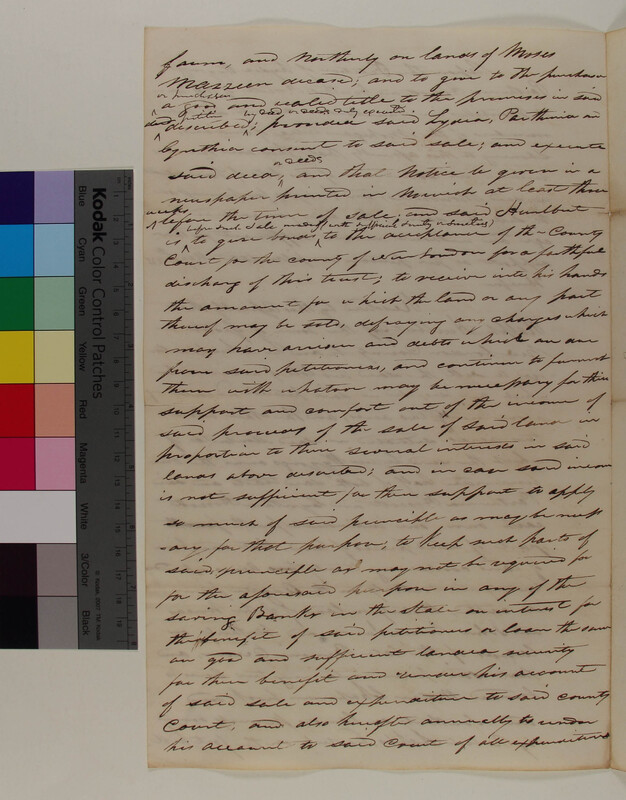 farm, and Northerly on lands of Moses
Mazzeen deceased; and to give to the purchaser
or purchasers
a good and valid title to the premises in said
petition by deed or deeds duly executed
described; provided said Lydia, Parthenia an
Cynthia consent to said sale; and execute
or deeds
said deed, and that Notice be given in a
newspaper printed in Norwich at least three
weeks
before the time of sale; and said Hurlbut
before such sale made with sufficient surety or sureties
is to give bonds to the acceptance of the County
Court for the county of New London for a faithful
discharg of this trust; to receive into his hands
the amount for which the land or any part
thereof may be sold, defraying any charges which
may have arisen and debts which are due
from said petitioners, and continue to furnish
them with whatever may be necessary for their
support and comfort out of the income of
said proceeds of the sale of said land in
proportion to their several interests in said
lands above described; and in case said income
is not sufficient for their support to apply
so much of said principle as may be necess
-ary for that purpose; to keep such parts of
said principle as may not be required for
for the aforesaid purpose in any of the
saving Banks in the State on interest for
the benefit of said petitioners or loan the same
on good and sufficient landed security
for their benefit and render his account
of said sale and expenditure to said county
Court, and also hereafter annually to render
his account to said Court of all expenditures
Kodak Color Control Patches
Blue
Cyan
Green
Yellow
Red
Magenta
White
3/Color
Black